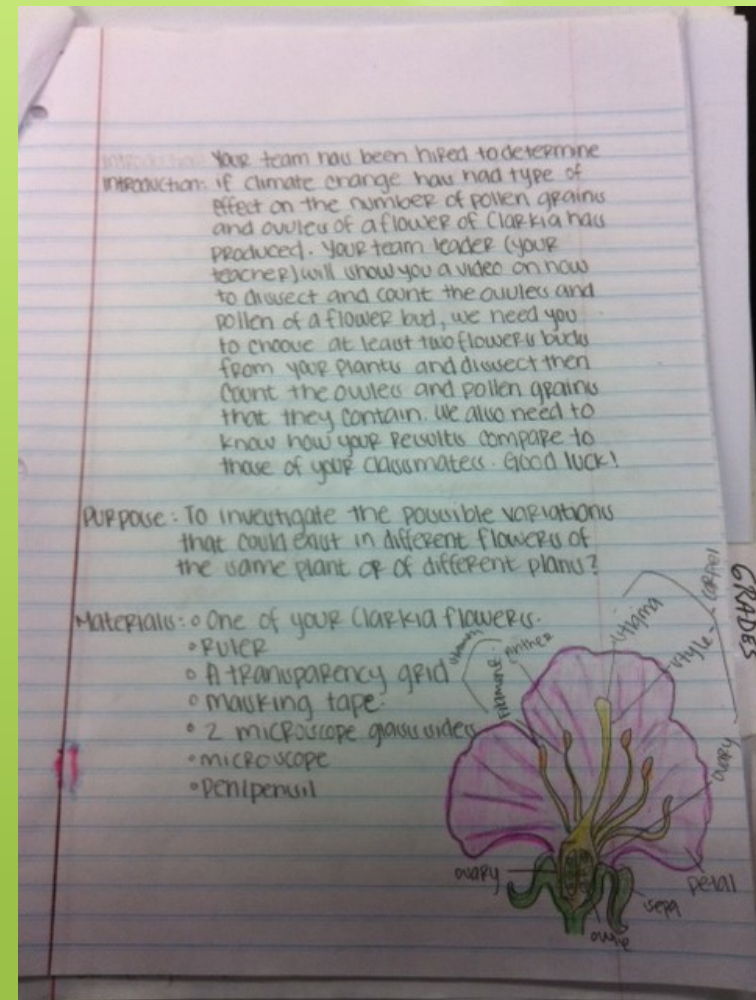 Your team has been hired to determine
Introduction: if climate change has had type of
effect on the number of pollen grains
and ovules of a flower of Clarkia has
produced. Your team leader (your
teacher) will show you a video on how
to dissect and count the ovules and
pollen of a flower bud, we need you
to choose at least two flowers buds
from your plants and dissect then
count the ovules and pollen grains
that they contain. We also need to
know how your results compare to
those of your classmates. Good luck!
Purpose: To investigate the possible variations
that could exist in different flowers of
the same plant or of different plans?
Materials: ○ One of your Clarkia flowers.
○ Ruler
○ A transparency grid
○ Masking tape
○ 2 microscope glass sides
○ microscope
○ Pen/pensil
anther
stigma
style
carpel
GRADES
ovary
ovary
petal
sepa
ovule